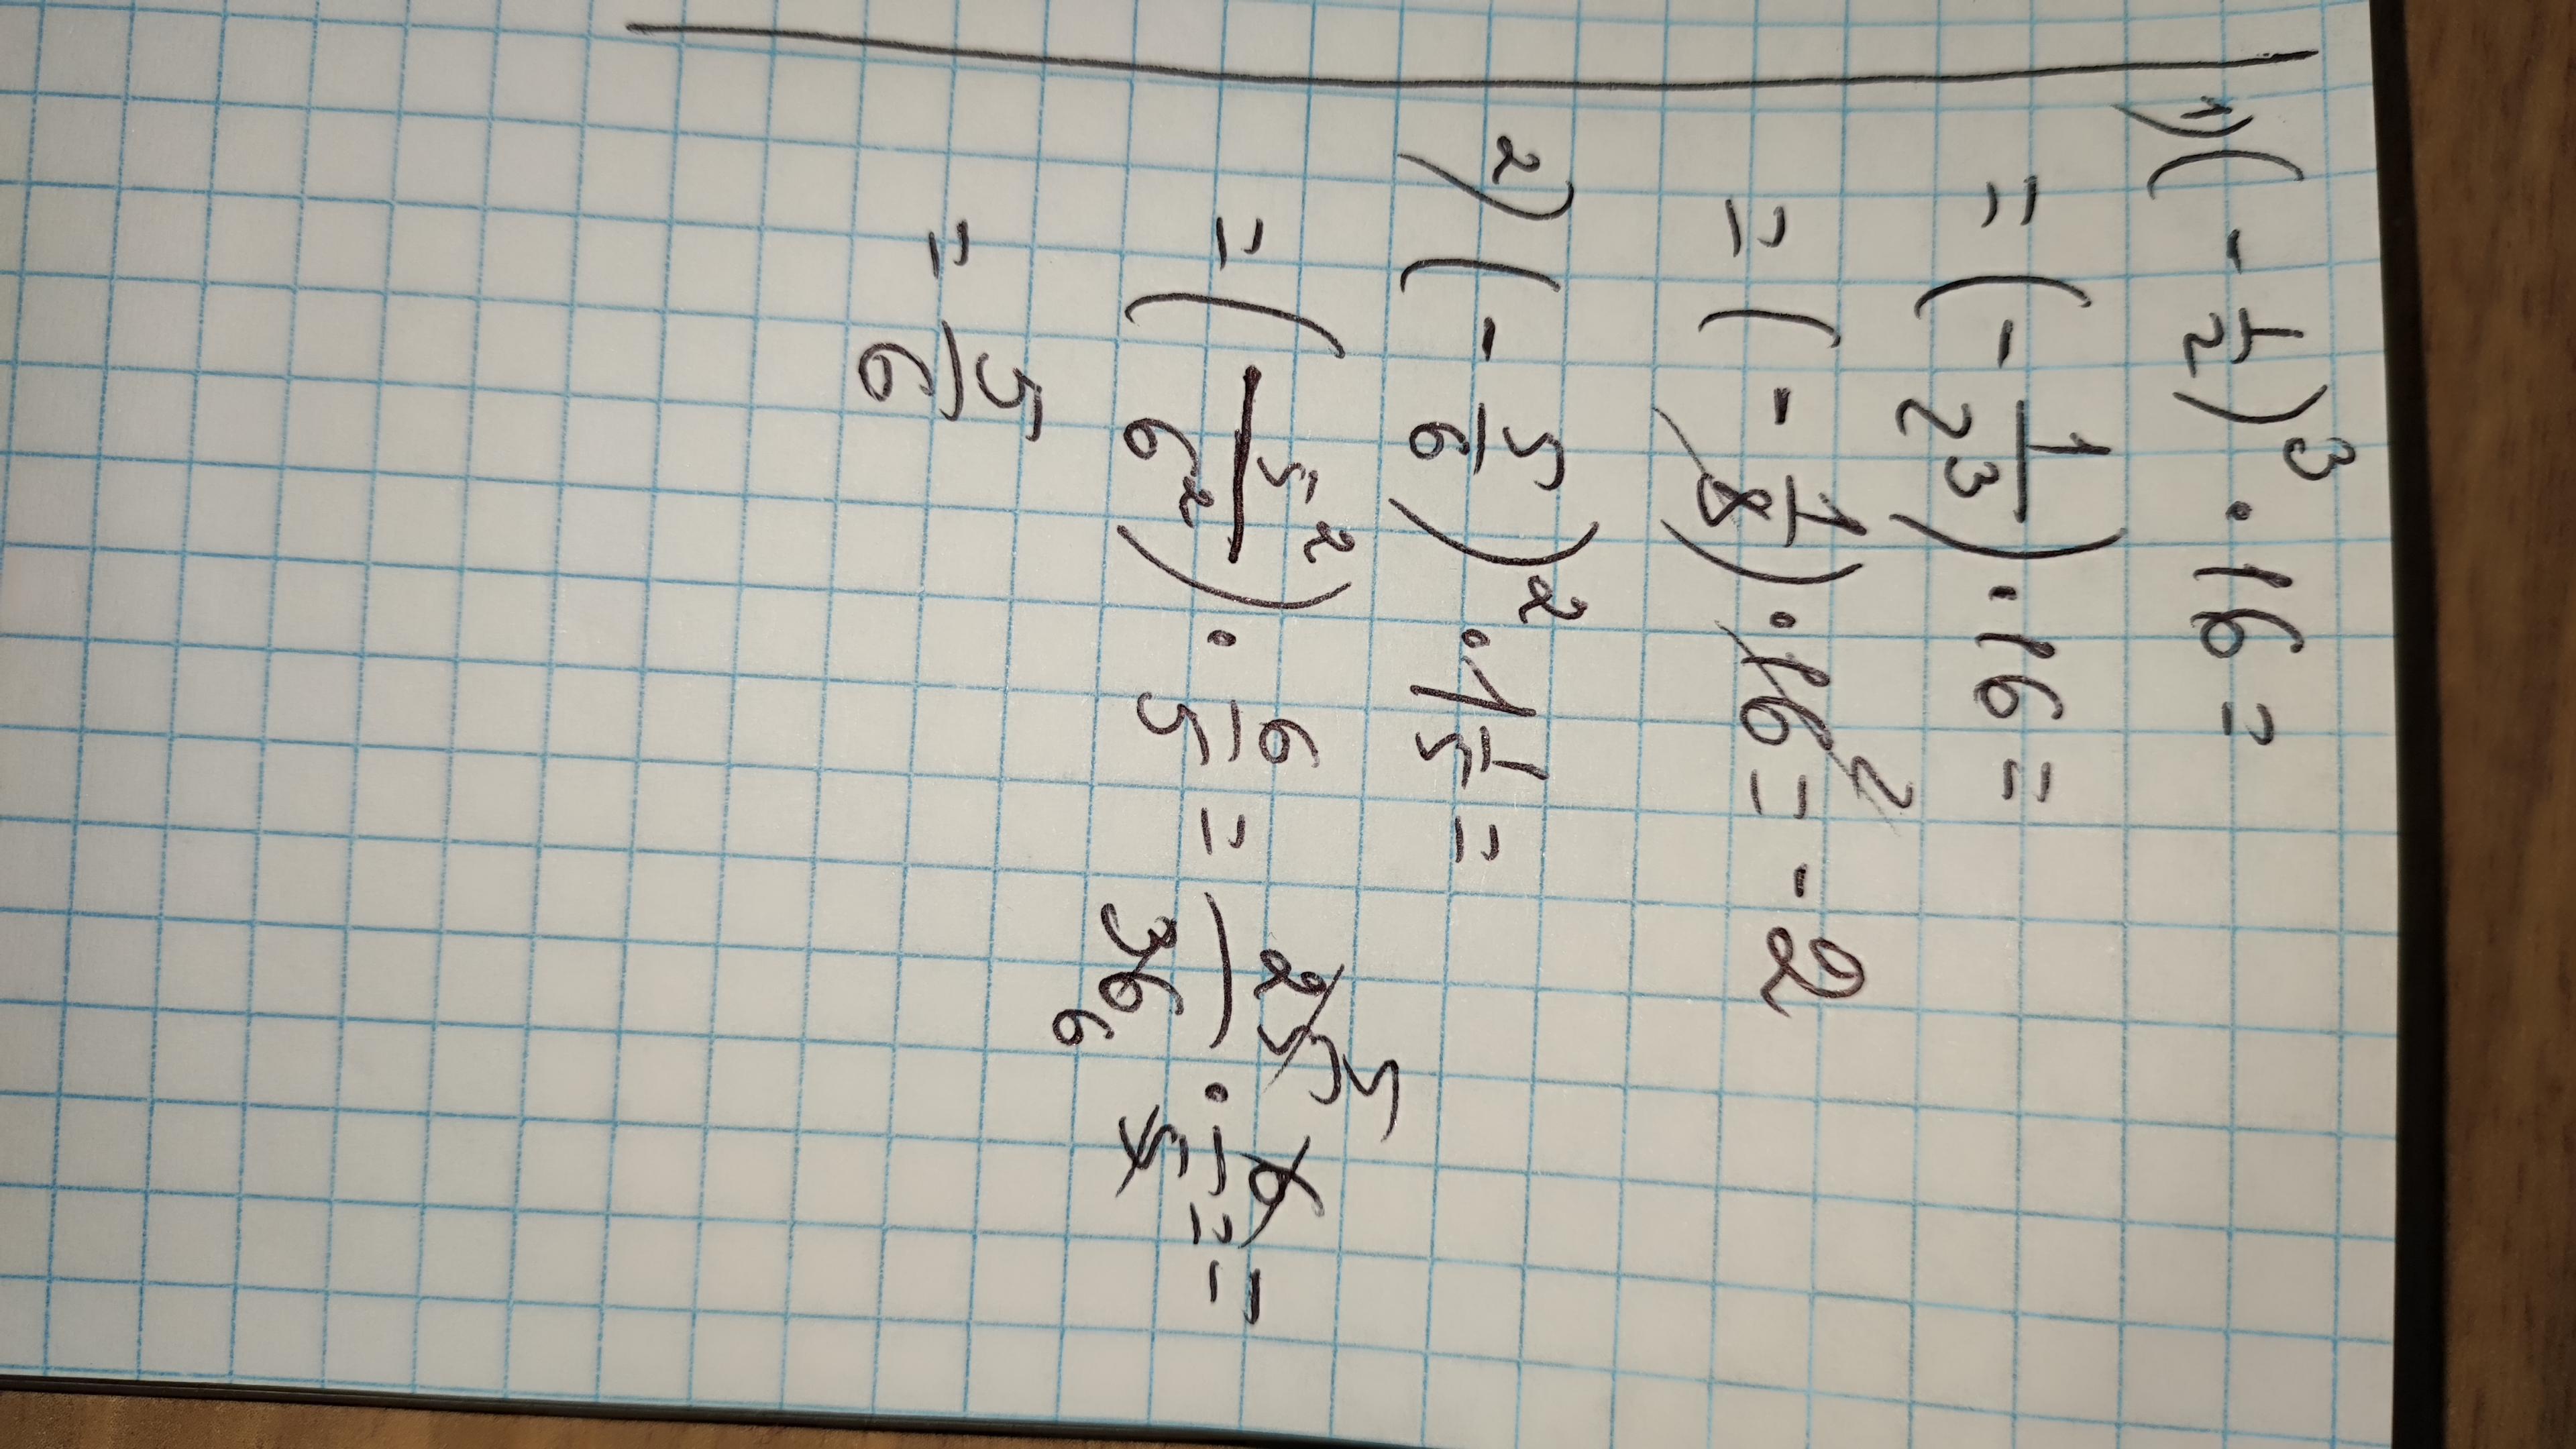 1) (-1/2)³ · 16 =
= (-1/2³) · 16 =
= (-1/8) · 16 2 = -2
2) (-5/6)² · 1 1/5 =
= (5²/6²) · 6/5 = 25 5/36 6 · 6/5 = =
= 5/6